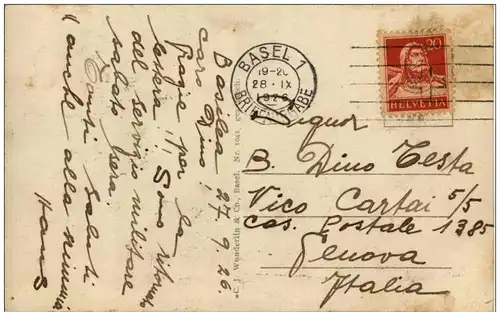 Basilea 27.9.26.
caro Dino,
per la
lettera! Sono ritornato
del servizio militare
sabato sera.
Tanti saluti
(anche alla mamma
Hans
C. Wunderlin & Co., Basel. Nr. 1042
BASEL 1
19-20
28.IX
1926
20
HELVETIA
Signor
B. Dino Testa
Vico Cartai 5/5
cas. Postale 1385
Genova
Italia